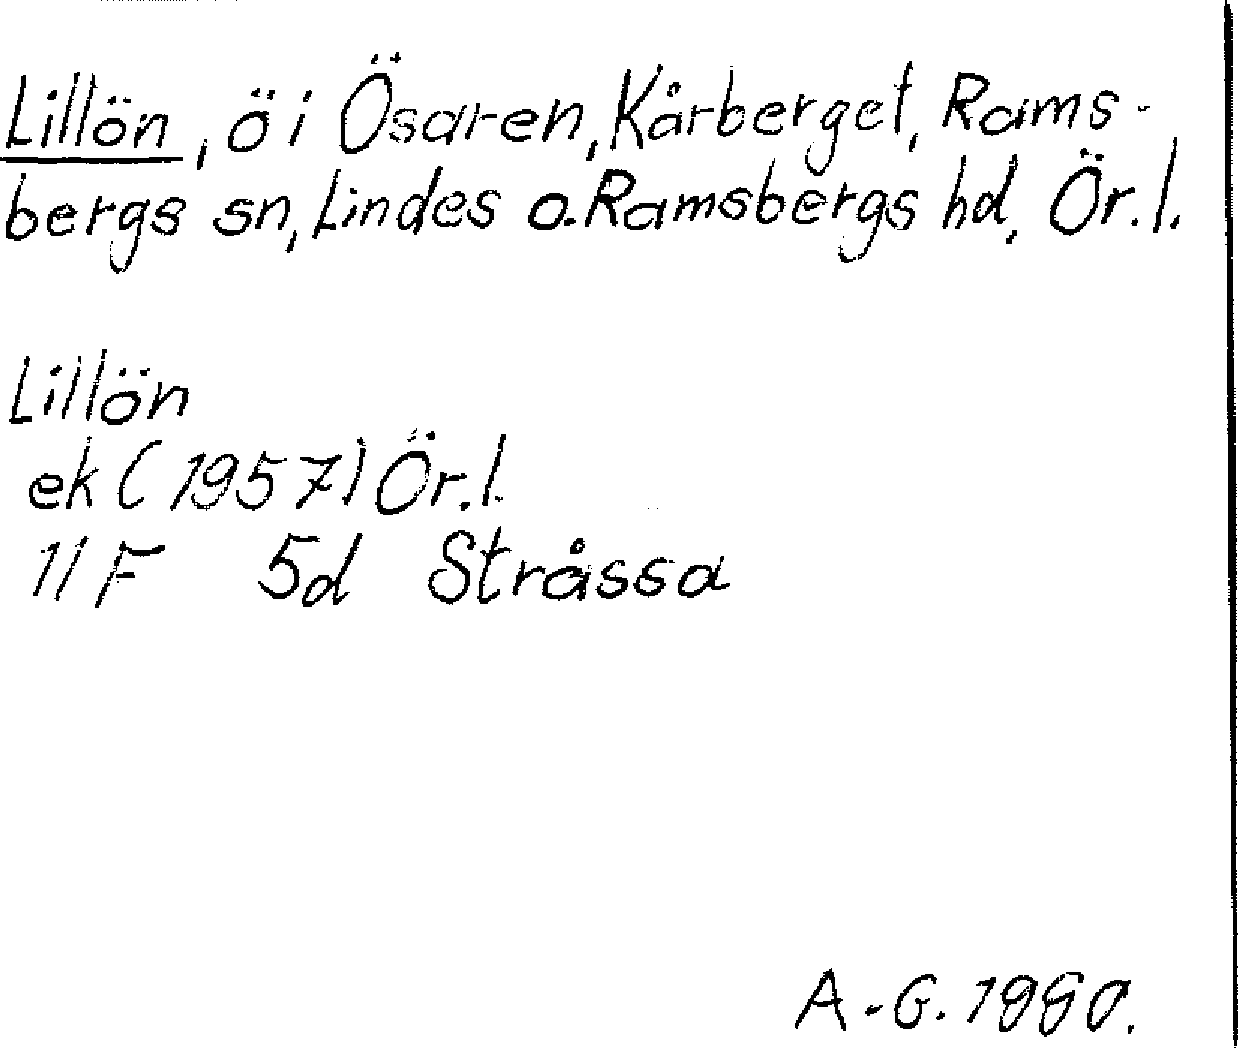 Lillön, ö i Ösaren, Kårberget, Rams-
bergs sn, Lindes o. Ramsbergs hd, Ör. l.
Lillön
ek (1957) Ör. l.
11 F 5d Stråssa
A.-G. 1980.